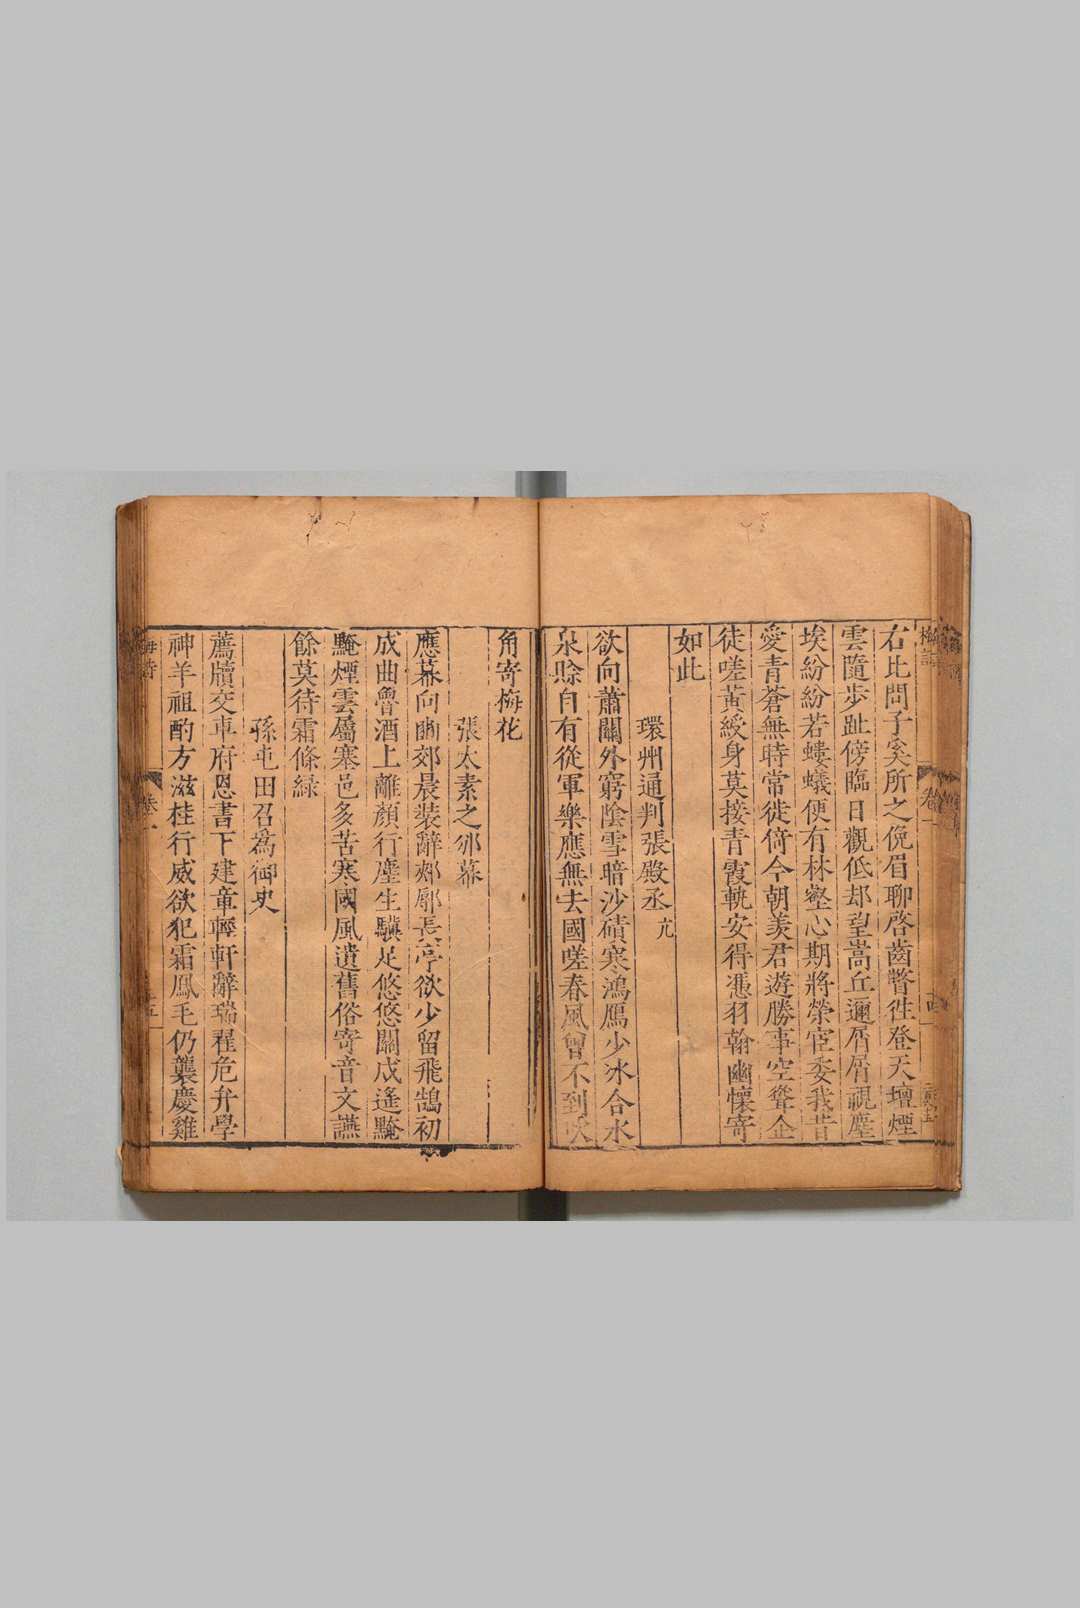 右比問子奚所之俛眉聊啓齒瞥徃登天壇煙
雲隨步趾傍臨日觀低却望嵩丘邇屑屑視塵
埃紛紛若螻蟻便有林壑心期將榮宦委我昔
愛青蒼無時常徙倚今朝羡君遊勝事空聳企
徒嗟黃綬身莫接青霞軌安得憑羽翰幽懷寄
如此
環州通判張殿丞亢
欲向蕭關外窮陰雪暗沙磧寒鴻鴈少冰合水
泉賒自有從軍樂應無去國嗟春風曾不到吹
角寄梅花
張太素之邠幕
應幕向豳郊晨裝辭郟鄏長亭欲少留飛鵠初
成曲罇酒上離顏行塵生驥足悠悠關戍遙黤
黤煙雲屬塞邑多苦寒國風遺舊俗寄音文讌
餘莫待霜條緑
孫屯田召爲御史
薦牘交車府恩書下建章輕軒辭瑞稚危弁學
神羊祖酌方滋桂行威欲犯霜鳳毛仍襲慶雞
梅詩
卷一
十四
卷一
十五